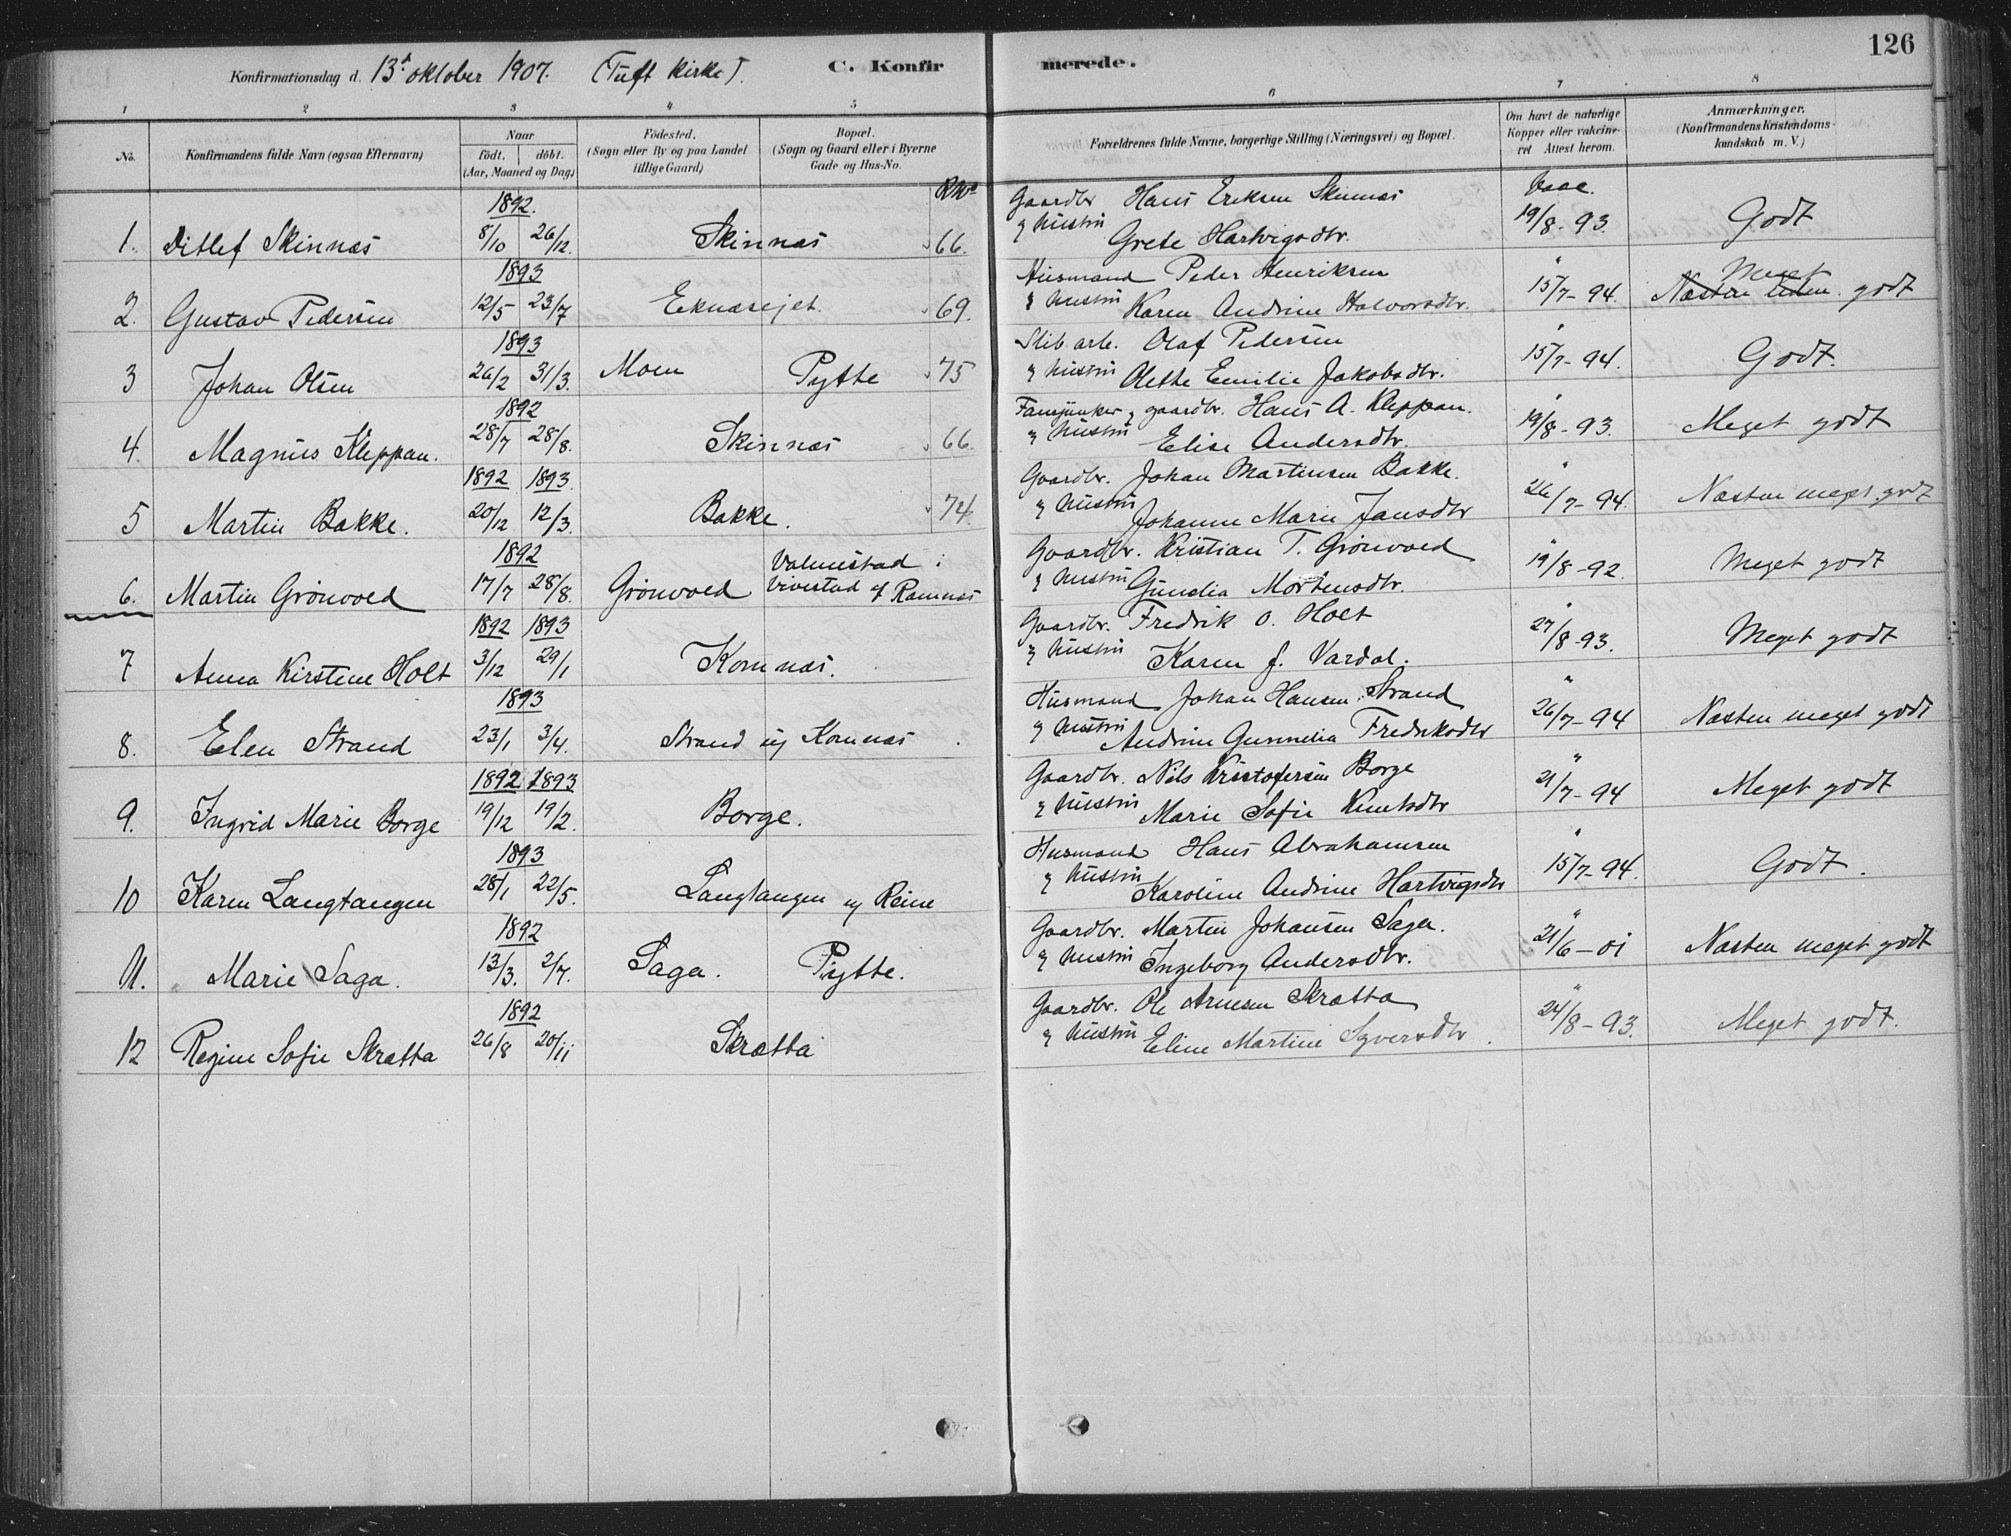 126
Konfirmationsdag d. 13de oktober 1907. (Tuft kirke). C. Konfirmerede.
1 2 3 4 5 6 7 8
No. Konfirmandens fulde Navn (ogsaa Efternavn) Naar født. døbt. (Aar, Maaned og Dag) Fødested. (Sogn eller By og paa Landet tillige Gaard) Bopæl. (Sogn og Gaard eller i Byerne Gade og Hus-No. Forældrenes fulde Navne, borgerlige Stilling (Næringsvei) og Bopæl. Om havt de naturlige Kopper eller vakcineret Attest herom. Anmærkninger. (Konfirmandens Kristendomskundskab m. V.)
1892. Gaardbr Hans Eriksen Skinnæs Vacc.
1. Ditlef Skinnæs 8/10 26/12. Skinnæs 66. & hustru Grete Hartvigsdtr. 19/8-93. Godt
1893 Husmand Peder Henriksen " Meget
2. Gustav Pedersen 12/5 23/7 Eknæsejet. 69. & hustru Karen Andrine Halvorsdtr. 15/7-94. Næsten godt
1893 Slib. arb. Olaf Pedersen "
3 Johan Olsen 26/2 31/3. Moen Pytte 75 & hustru Olethe Emilie Jakobsdtr. 15/7-94. Godt.
1892 Fanejunker & gaardbr. Hans A. Kleppan. "
4. Magnus Kleppan. 28/7 28/8. Skinnæs 66. & hustru Elise Andersdtr. 19/8-93. Meget godt
1892 1893. Gaardbr. Johan Martinsen Bakke. "
5 Martin Bakke. 20/12 12/3. Bakke. 74. & hustru Johanne Marie Jansdtr 26/7-94. Næsten meget godt
1892 Valmestad i Gaardbr. Kristian T. Grönvold "
6. Martin Grönvold 17/7 28/8. Grönvold Vivestad af Ramnæs & hustru Gunelia Mortensdtr. 19/8-92. Meget godt
1892 1893 Gaardbr. Fredrik O. Holt "
7 Anna Kirstine Holt 3/12 29/1 Komnæs. & hustru Karen J. Vardal. 27/8-93. Meget godt
1893 Husmand Johan Hansen Strand "
8. Elen Strand 23/1 3/4. Strand u/ Komnæs & hustru Andrine Gunnelia Fredriksdtr 26/7-94 Næsten meget godt
1892 1893 Gaardbr. Nils Kristofersen Borge "
9. Ingrid Marie Borge 19/12 19/2. Borge. & hustru Marie Sofie Knutsdtr 21/7-94 Meget godt
1893 Husmand Hans Abrahamsen "
10 Karen Langtangen 28/1 22/5. Langtangen u/ Reine & hustru Karoline Andrine Hartvigsdtr 15/7-94. Godt.
1892 Gaardbr. Martin Johansen Saga. "
11. Marie Saga. 13/3. 2/7. Saga. Pytte. & hustru Ingeborg Andersdtr. 21/6-01 Næsten meget godt
1892 Gaardbr. Ole Arnesen Skrætta "
12 Regine Sofie Skrætta 26/8 20/11 Skrætta & hustru Eline Martine Syversdtr. 24/8-93. Meget godt.